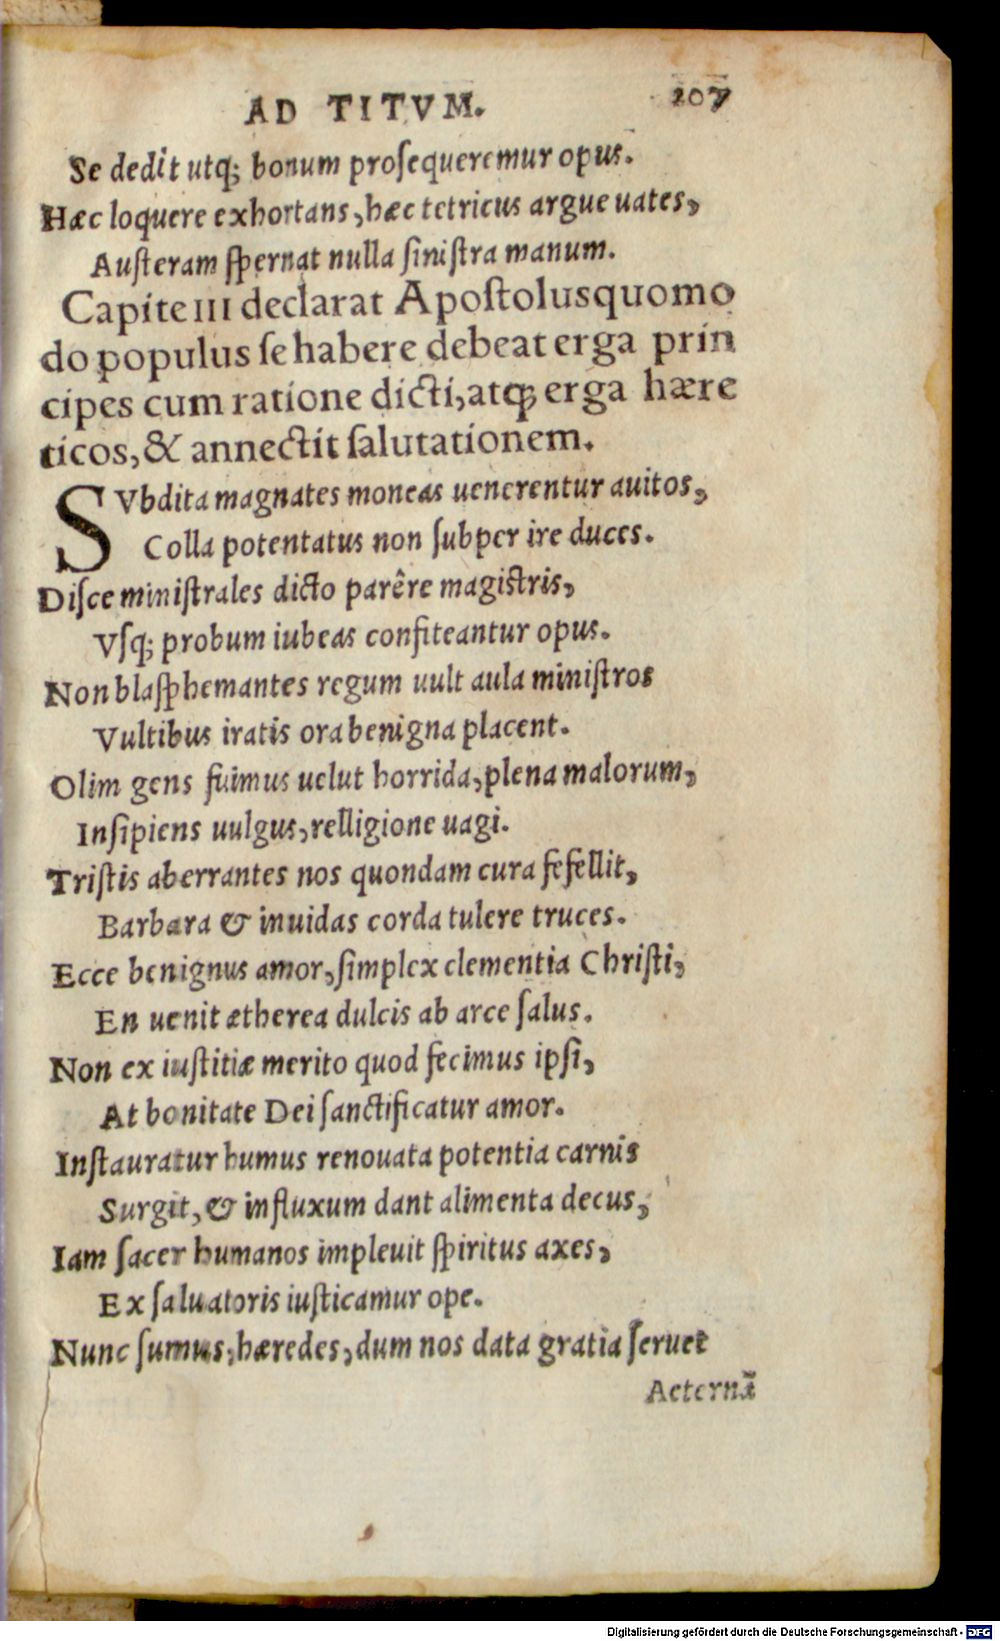 AD TITVM. 207
Se dedit utq; bonum proſequeremur opus.
Hæc loquere exhortans, hæc tetricus argue uates,
Auſteram ſpernat nulla ſiniſtra manum.
Capite III declarat Apoſtolus quomo
do populus ſe habere debeat erga prin
cipes cum ratione dicti, atq; erga hære
ticos, & annectit ſalutationem.
SVbdita magnates moneas uenerentur auitos,
Colla potentatus non ſubper ire duces.
Diſce miniſtrales dicto parêre magiſtris,
Vſq; probum iubeas confiteantur opus.
Non blaſphemantes regum uult aula miniſtros
Vultibus iratis ora benigna placent.
Olim gens fuimus uelut horrida, plena malorum,
Inſipiens uulgus, relligione uagi.
Triſtis aberrantes nos quondam cura fefellit,
Barbara & inuidas corda tulere truces.
Ecce benignus amor, ſimplex clementia Chriſti,
En uenit ætherea dulcis ab arce ſalus.
Non ex iuſtitiæ merito quod fecimus ipſi,
At bonitate Dei ſanctificatur amor.
Inſtauratur humus renouata potentia carnis
Surgit, & influxum dant alimenta decus,
Iam ſacer humanos impleuit ſpiritus axes,
Ex ſaluatoris iuſticamur ope.
Nunc ſumus, hæredes, dum nos data gratia ſeruet
Aeternā
Digitalisierung gefördert durch die Deutsche Forschungsgemeinschaft - DFG